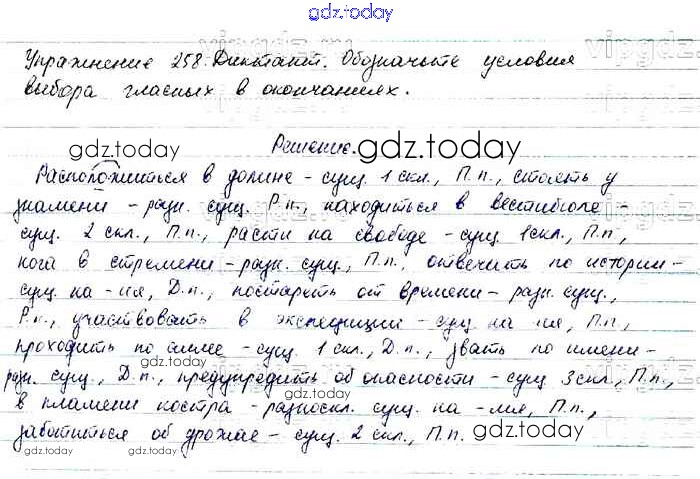 gdz.today
Упражнение 258. Диктант. Обозначьте условия
выбора гласных в окончаниях.
gdz.today
Решение. gdz.today
Расположиться в долине - сущ. 1 скл., П.п., стоять у
знамени - разн. сущ. Р.п., находиться в вестибюле -
сущ. 2 скл., П.п., расти на свободе - сущ. 1 скл., П.п,
нога в стремени - разн. сущ., П.п., отвечать по истории -
сущ на -ия, Д.п., постареть от времени - разн. сущ.,
Р.п., участвовать в экспедиции - сущ на -ия, П.п.,
проходить по аллее - сущ. 1 скл., Д.п., звать по имени -
разн. сущ., Д.п., предупредить об опасности - сущ 3 скл., П.п.,
в пламени костра - разноскл. сущ. на -мя, П.п.,
заботиться об урожае - сущ. 2 скл., П.п. gdz.today
gdz.today
gdz.today